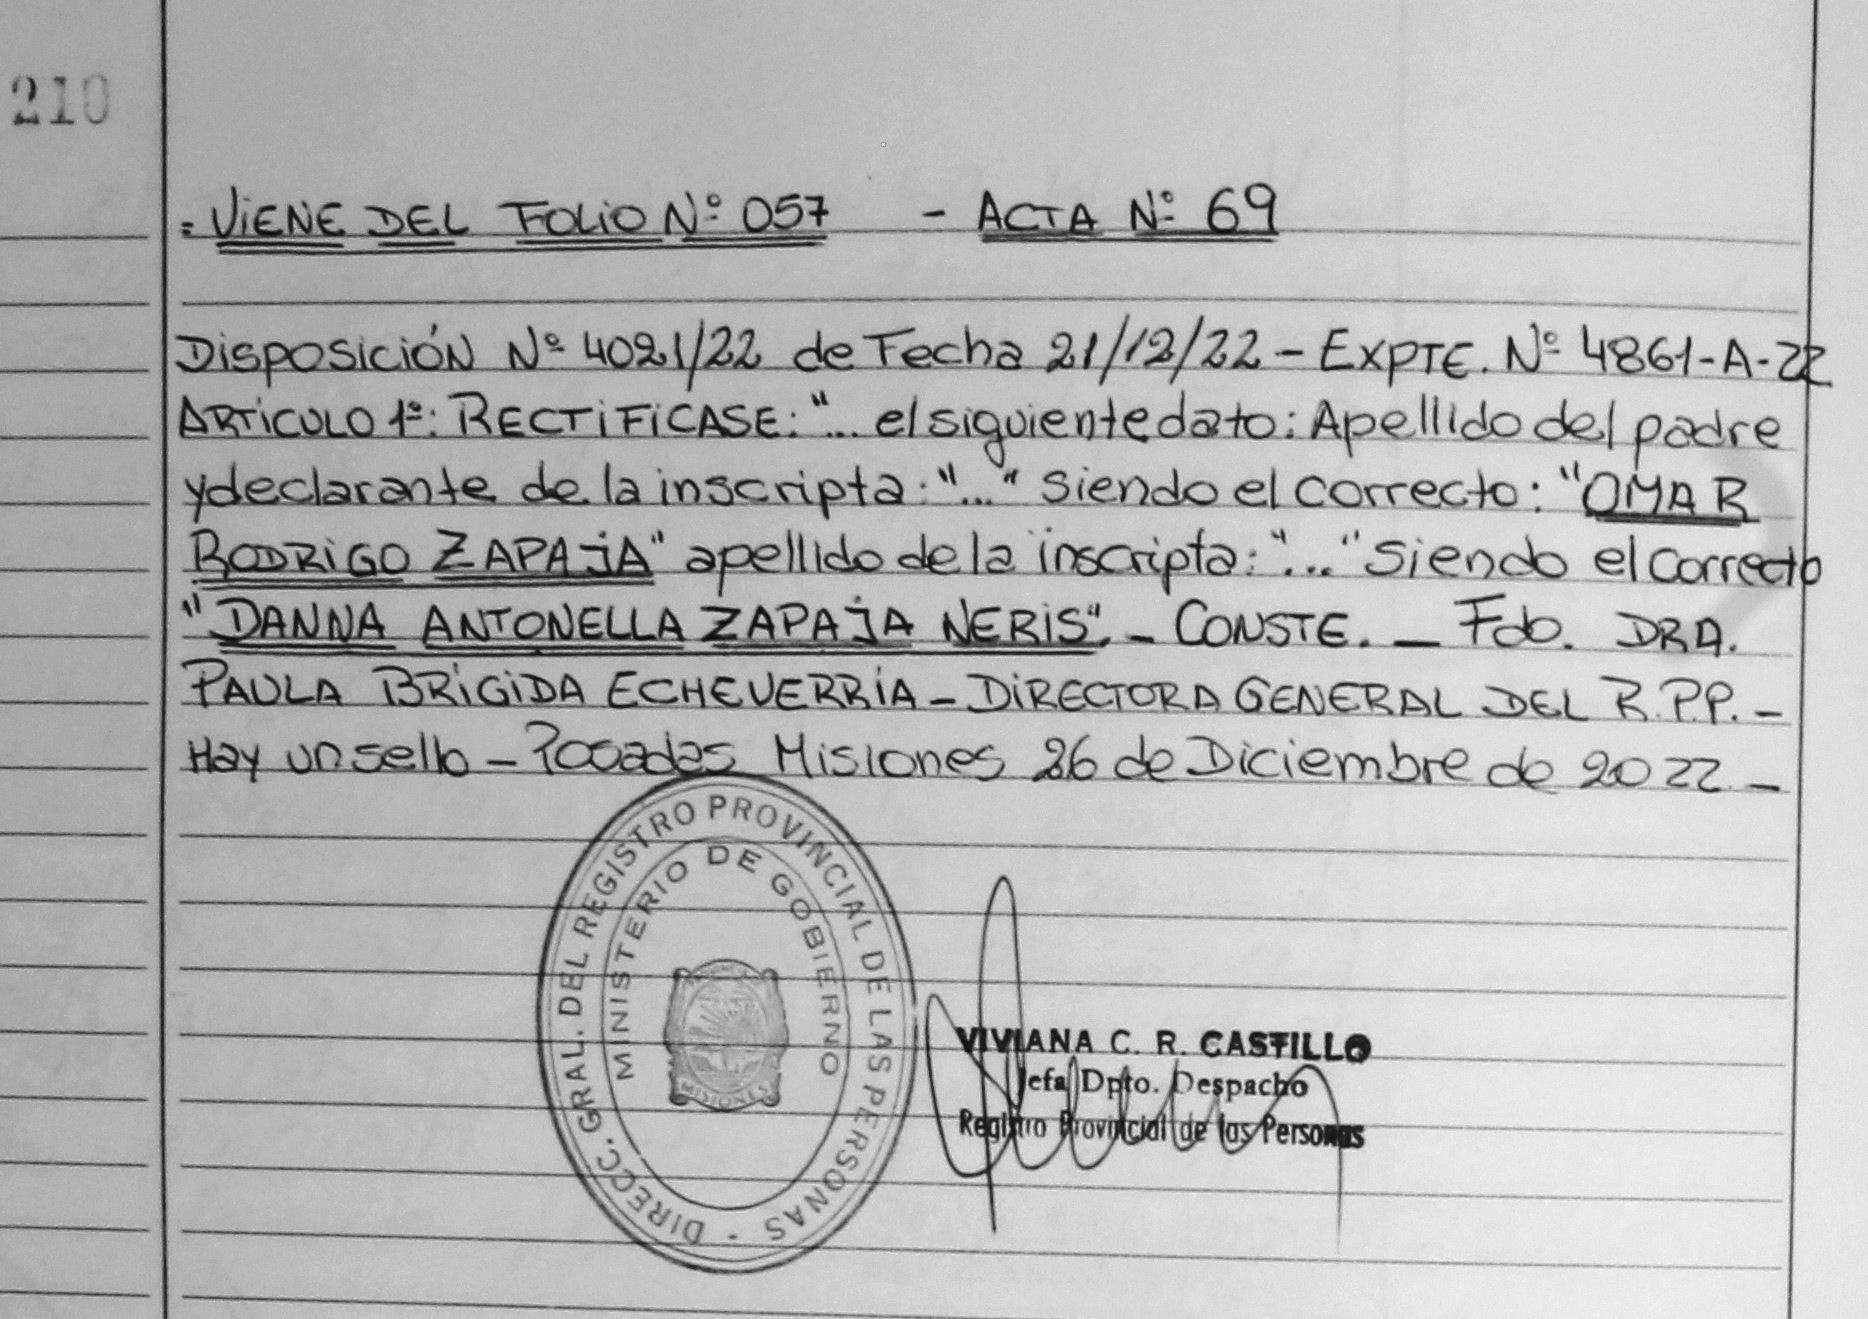 210
= ViENE DEL FOLiO Nº 057 - ACTA Nº 69
DisposiciÓN Nº 4021/22 de Fecha 21/12/22 - EXPTE. Nº 4861-A-22
ARTíCULO 1º: RECTiFiCASE: "... el siguiente dato: Apellido del padre
y declarante de la inscripta: "..." siendo el correcto: "OMAR
RODRiGO ZAPAjA" apellido de la inscripta: "..." siendo el correcto
"DANNA ANTONELLA ZAPAjA NERiS". - CONSTE. - Fdo. DRA.
PAULA BRíGiDA ECHEVERRíA - DiRECTORA GENERAL DEL R.P.P. -
Hay un sello - Posadas Misiones 26 de Diciembre de 2022. -
DIRECC. GRAL. DEL REGISTRO PROVINCIAL DE LAS PERSONAS -
MINISTERIO DE GOBIERNO
MISIONES
VIVIANA C. R. CASTILLO
Jefa Dpto. Despacho
Registro Provincial de las Personas